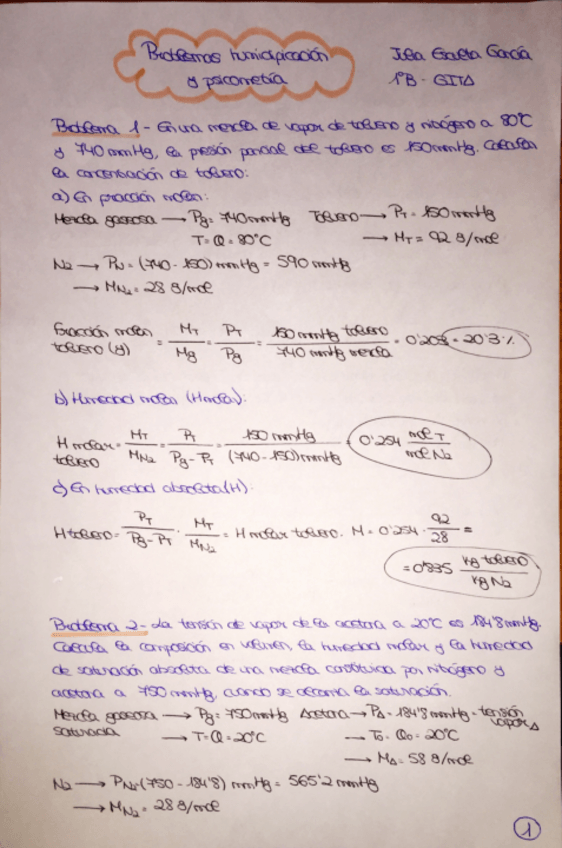 Problemas humidificación y psicometría
Julia García
1ºB - GITA
Problema 1 - En una mezcla de vapor de tolueno y nitrógeno a 80ºC
y 740 mmHg, la presión parcial del tolueno es 150 mmHg. Calcula
la concentración de tolueno:
a) En fracción molar:
Mezcla gaseosa → Pg = 740 mmHg Tolueno → PT = 150 mmHg
T = Q = 80ºC → MT = 92 g/mol
N2 → PN = (740 - 150) mmHg = 590 mmHg
→ MN2 = 28 g/mol
Fracción molar tolueno (y) = MT/Mg = PT/Pg = 150 mmHg tolueno / 740 mmHg mezcla = 0'203 = 20'3 %
b) Humedad molar (Hmolar):
H molar tolueno = MT/MN2 = PT/(Pg - PT) = 150 mmHg / (740 - 150) mmHg = 0'254 mol T / mol N2
c) En humedad absoluta (H):
H tolueno = PT/(Pg - PT) · MT/MN2 = H molar tolueno · M = 0'254 · 92/28 =
= 0'835 kg tolueno / kg N2
Problema 2 - La tensión de vapor de la acetona a 20ºC es 184'8 mmHg.
Calcula la composición en volumen, la humedad molar y la humedad
de saturación absoluta de una mezcla constituida por nitrógeno y
acetona a 750 mmHg, cuando se alcanza la saturación.
Mezcla gaseosa saturada → Pg = 750 mmHg Acetona → PA = 184'8 mmHg = tensión vapor A
→ T = Q = 20ºC → To = Qo = 20ºC
→ MA = 58 g/mol
N2 → PN2 = (750 - 184'8) mmHg = 565'2 mmHg
→ MN2 = 28 g/mol
1